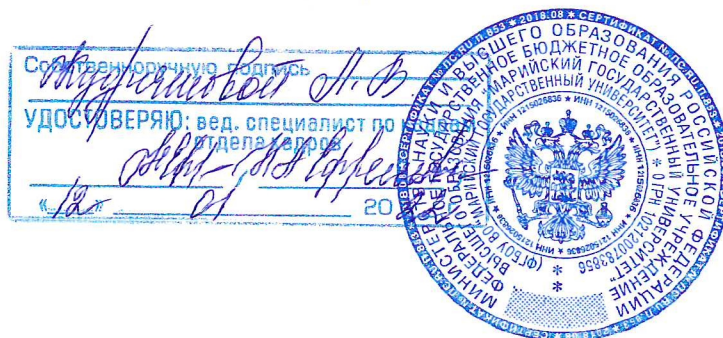 Собственноручную подпись
Л. В
УДОСТОВЕРЯЮ: вед. специалист по кадрам
отдела кадров
«12» 01 20
МИНИСТЕРСТВО НАУКИ И ВЫСШЕГО ОБРАЗОВАНИЯ РОССИЙСКОЙ ФЕДЕРАЦИИ
ФЕДЕРАЛЬНОЕ ГОСУДАРСТВЕННОЕ БЮДЖЕТНОЕ ОБРАЗОВАТЕЛЬНОЕ УЧРЕЖДЕНИЕ
ВЫСШЕГО ОБРАЗОВАНИЯ "МАРИЙСКИЙ ГОСУДАРСТВЕННЫЙ УНИВЕРСИТЕТ" * ОГРН 1021200783856
(ФГБОУ ВО "МАРИЙСКИЙ ГОСУДАРСТВЕННЫЙ УНИВЕРСИТЕТ")
* ИНН 1215026836 * ИНН 1215026836
* 2018.08 * СЕРТИФИКАТ № ПС.RU.П.853